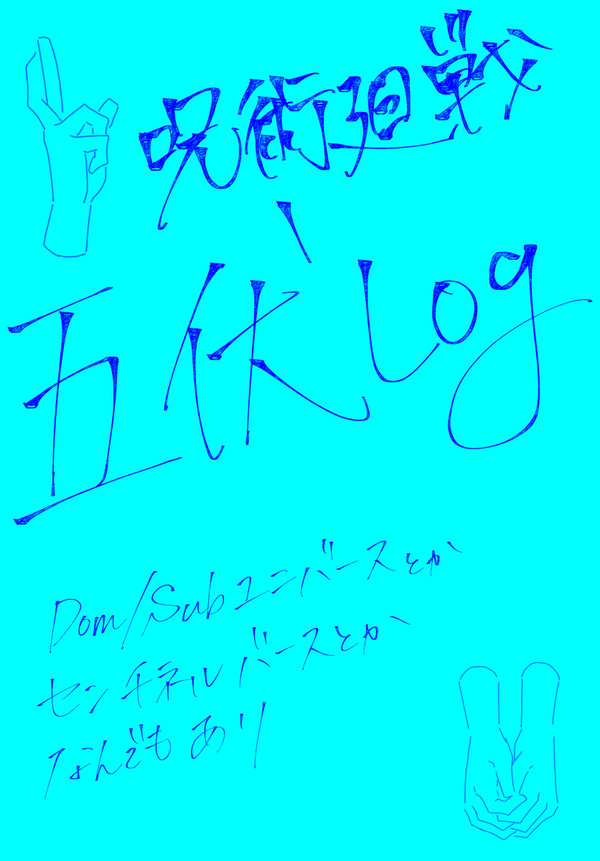 呪術廻戦
五伏log
Dom/Subユニバースとか
センチネルバースとか
なんでもあり